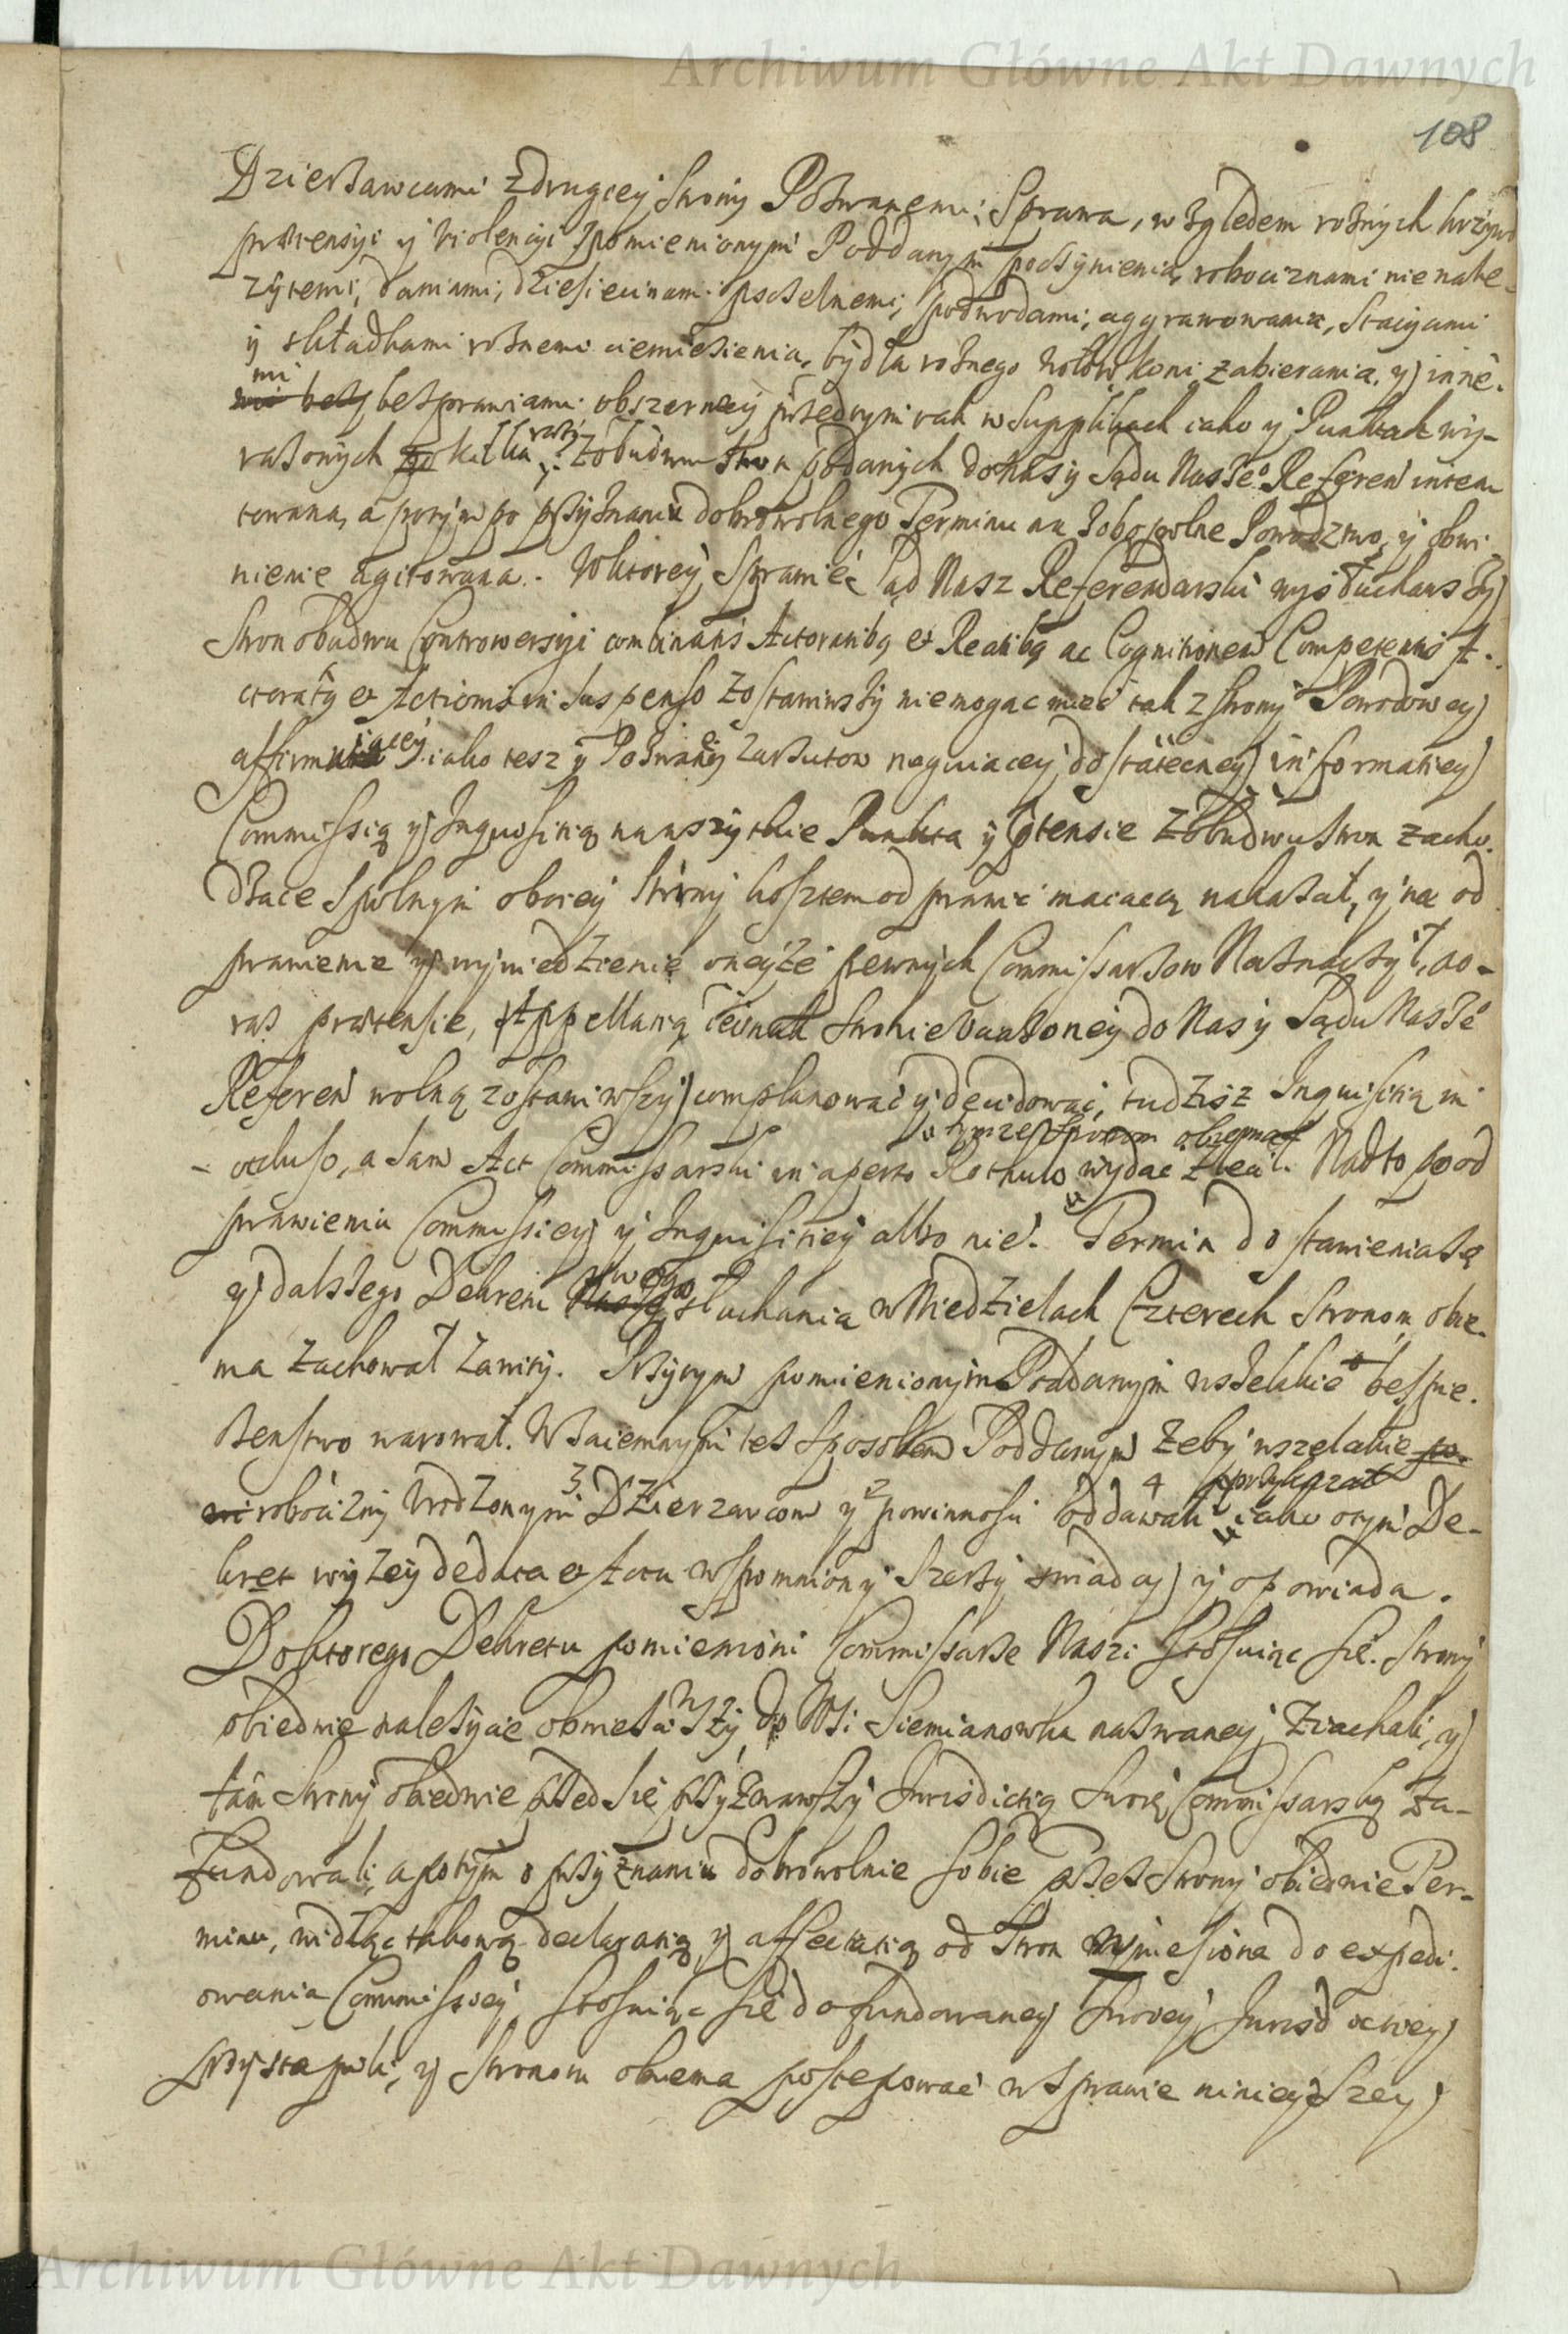 Archiwum Główne Akt Dawnych
108
Dzierżawcami z drugiey strony Pozwanemi; Sprawa, względem rożnych krzywd
praetensyi y violencyi wpomienionym Poddanym poczynienia, robociznami nienale-
żytemi, daniami, dziesiecinami pszczelnemi, podwodami, aggrawowania, stacyami
y składkami rożnemi ciemiężenia, bydła rożnego wołow koni zabierania, y inne-
mi bezprawiami obszerniey przed nymi rak w Supplikach iako y Punktach wy-
rażonych kilka razy z obudwu stron podanych do Nas y Sądu Nasze° Referen inten
towana, a potym po przyznaniu dobrowolnego Terminu na obopolne Powodztwo, y obwi
nienie agitowana. W ktorey Sprawie Sąd Nasz Referendarski wysłuchawszy
Stron obudwu Controwersyi combinans Actoratibq et Reatibq ac Cognitionem Competentis A-
ctoraty et Actionis in suspenso zostawiwszy niemogac miec tak z strony Powodowey
affirmuiącey iako tesz y Pozwaney zarzutow neguiacey dostateczney informatiey
Commissią y Inquisitią na wszytkie Punkta y ptensie z obudwu stron zacho
dzące spolnym oboiey strony kosztem odprawić maiacą nakazał, y na od
prawienie y wywiedzienie oneyże pewnych Commissarzow Naznaczył, ao-
raz praetensie, Appellatią iednak stronie urażoney do Nas y Sądu Nasze
Referen wolną zostawiwszy complanować y decidować, tudzisz Inquisitią in
ocluso, a sam Act Commissarski in aperto Rothulo wydać zlecił. Nadto po od
prawieniu Commissiey y Inquisitiey albo nie. Termin do stawienia się
y dalszego Dekretu swego słuchania w Niedzielach Czterech Stronom obie-
ma zachował zawity. Przytym pomienionym Poddanym wszelkie bespie-
czenstwo warował. Wzaiemnym tez sposobem Poddanym żeby wszelakie
robocizny Urodzonym 3 Dzierzawcom y 2 powinnosci oddawali 4 iako o tym De-
kret wyżey de data et Actu wspomniony szerzy swiadczy y opowiada.
Do ktorego Dekretu pomienioni Commissarze Naszi stosuiąc się. Strony
obiedwie należycie obwieściwszy do Wsi Siemianowka nazwaney, Ziachali, y
tam strony obiedwie przed się przyzwawszy Jurisdictią swoię Commissarską za-
fundowali, a potym o przyznaniu dobrowolnie sobie przez Strony obiedwie Ter-
minu, widząc takową declaratią y affectatią od Stron wniesiona do expedi-
owania Commissyey, stosuiąc się do fundowaney swoiey Jurisdictiey
przystapili, y stronom obiema postępować w sprawie ninieyszey
Archiwum Główne Akt Dawnych